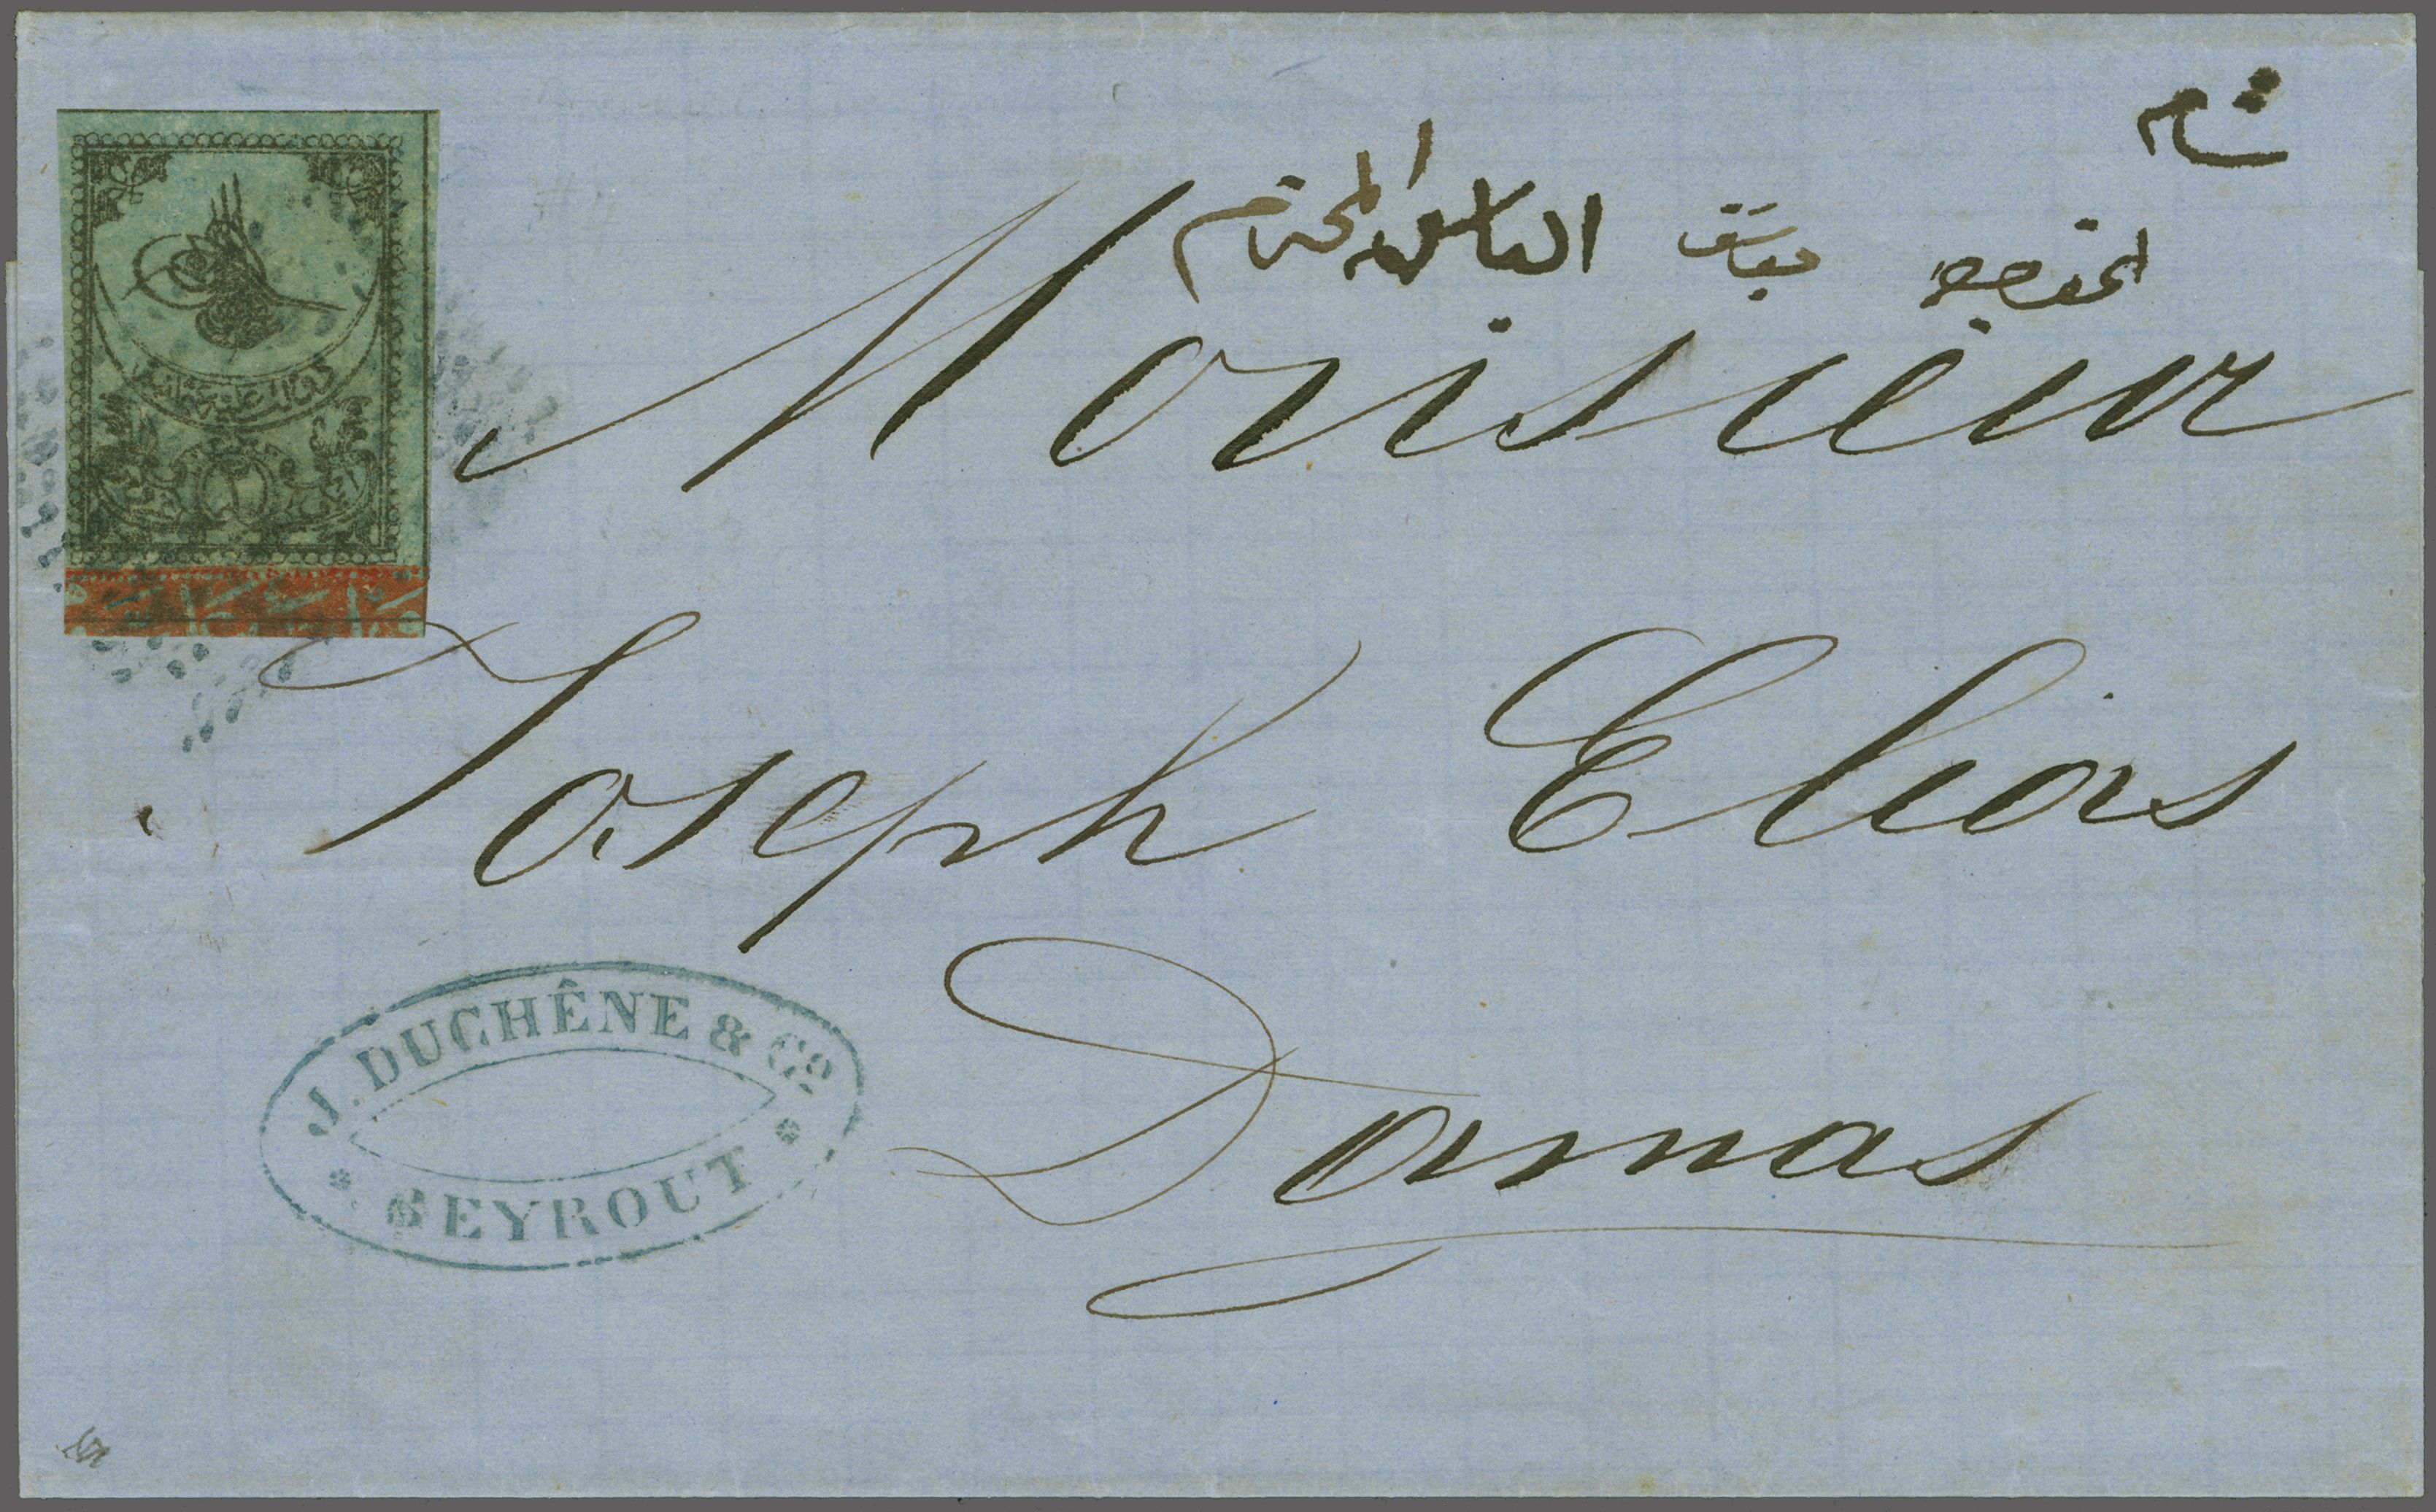 شام
الخواجه يوسف الياس المحترم
Monsieur
Joseph Elias
Damas
J. DUCHÊNE & Cº
BEYROUT